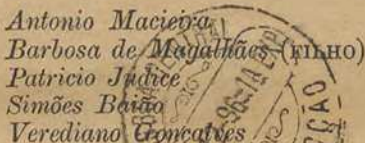 Antonio Macieira
Barbosa de Magalhães (FILHO)
Patricio Júdice
Simões Baião
Verediano Gonçalves